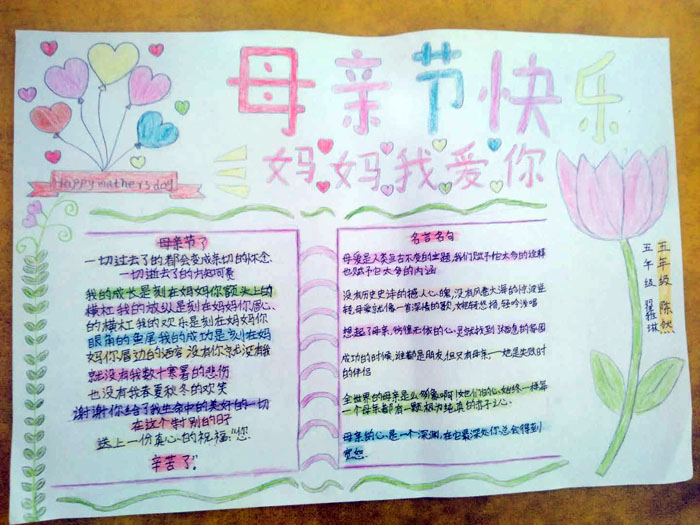 母亲节快乐
妈妈我爱你
Happy mathers day
母亲节了
一切过去了的都会变成亲切的怀念
一切逝去了的方知可贵
我的成长是刻在妈妈你额头上的
横杠我的放纵是刻在妈妈你眉心
的横杠我的欢乐是刻在妈妈你
眼角的鱼尾我的成功是刻在妈
妈你唇边的酒窝没有你
就没有我数十寒暑的悲伤
也没有我春夏秋冬的欢笑
谢谢你给了我生命中的美好的一切
在这个特别的日子
送上一份真心的祝福:"您
辛苦了"
名言名句
母爱是人类亘古不变的主题,我们赋予它太多的诠释
也赋予它太多的内涵
没有历史史诗的撼人心魄,没有风卷大海的惊波逆
转,母爱就像一首深情的歌,婉转悠扬,轻吟浅唱
想起了母亲,彷徨无依的心,灵就找到
成功的时候,谁都是朋友.但只有母亲——她是失败时
的伴侣
全世界的母亲是么的像啊!她们的心始终一样每
一个母亲都有一颗极为纯真的赤子之心.
母亲的心是一个深渊,在它最深处你总会得到
宽恕.
五年级 陈然
五年级 琪